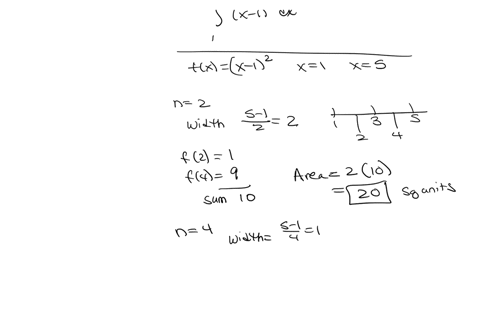 ∫ (x-1) dx
1
f(x) = (x-1)² x=1 x=5
n=2
width (5-1)/2 = 2
1 3 5
2 4
f(2) = 1
f(4) = 9
sum 10
Area = 2(10)
= 20 sq units
n=4 width = (5-1)/4 = 1